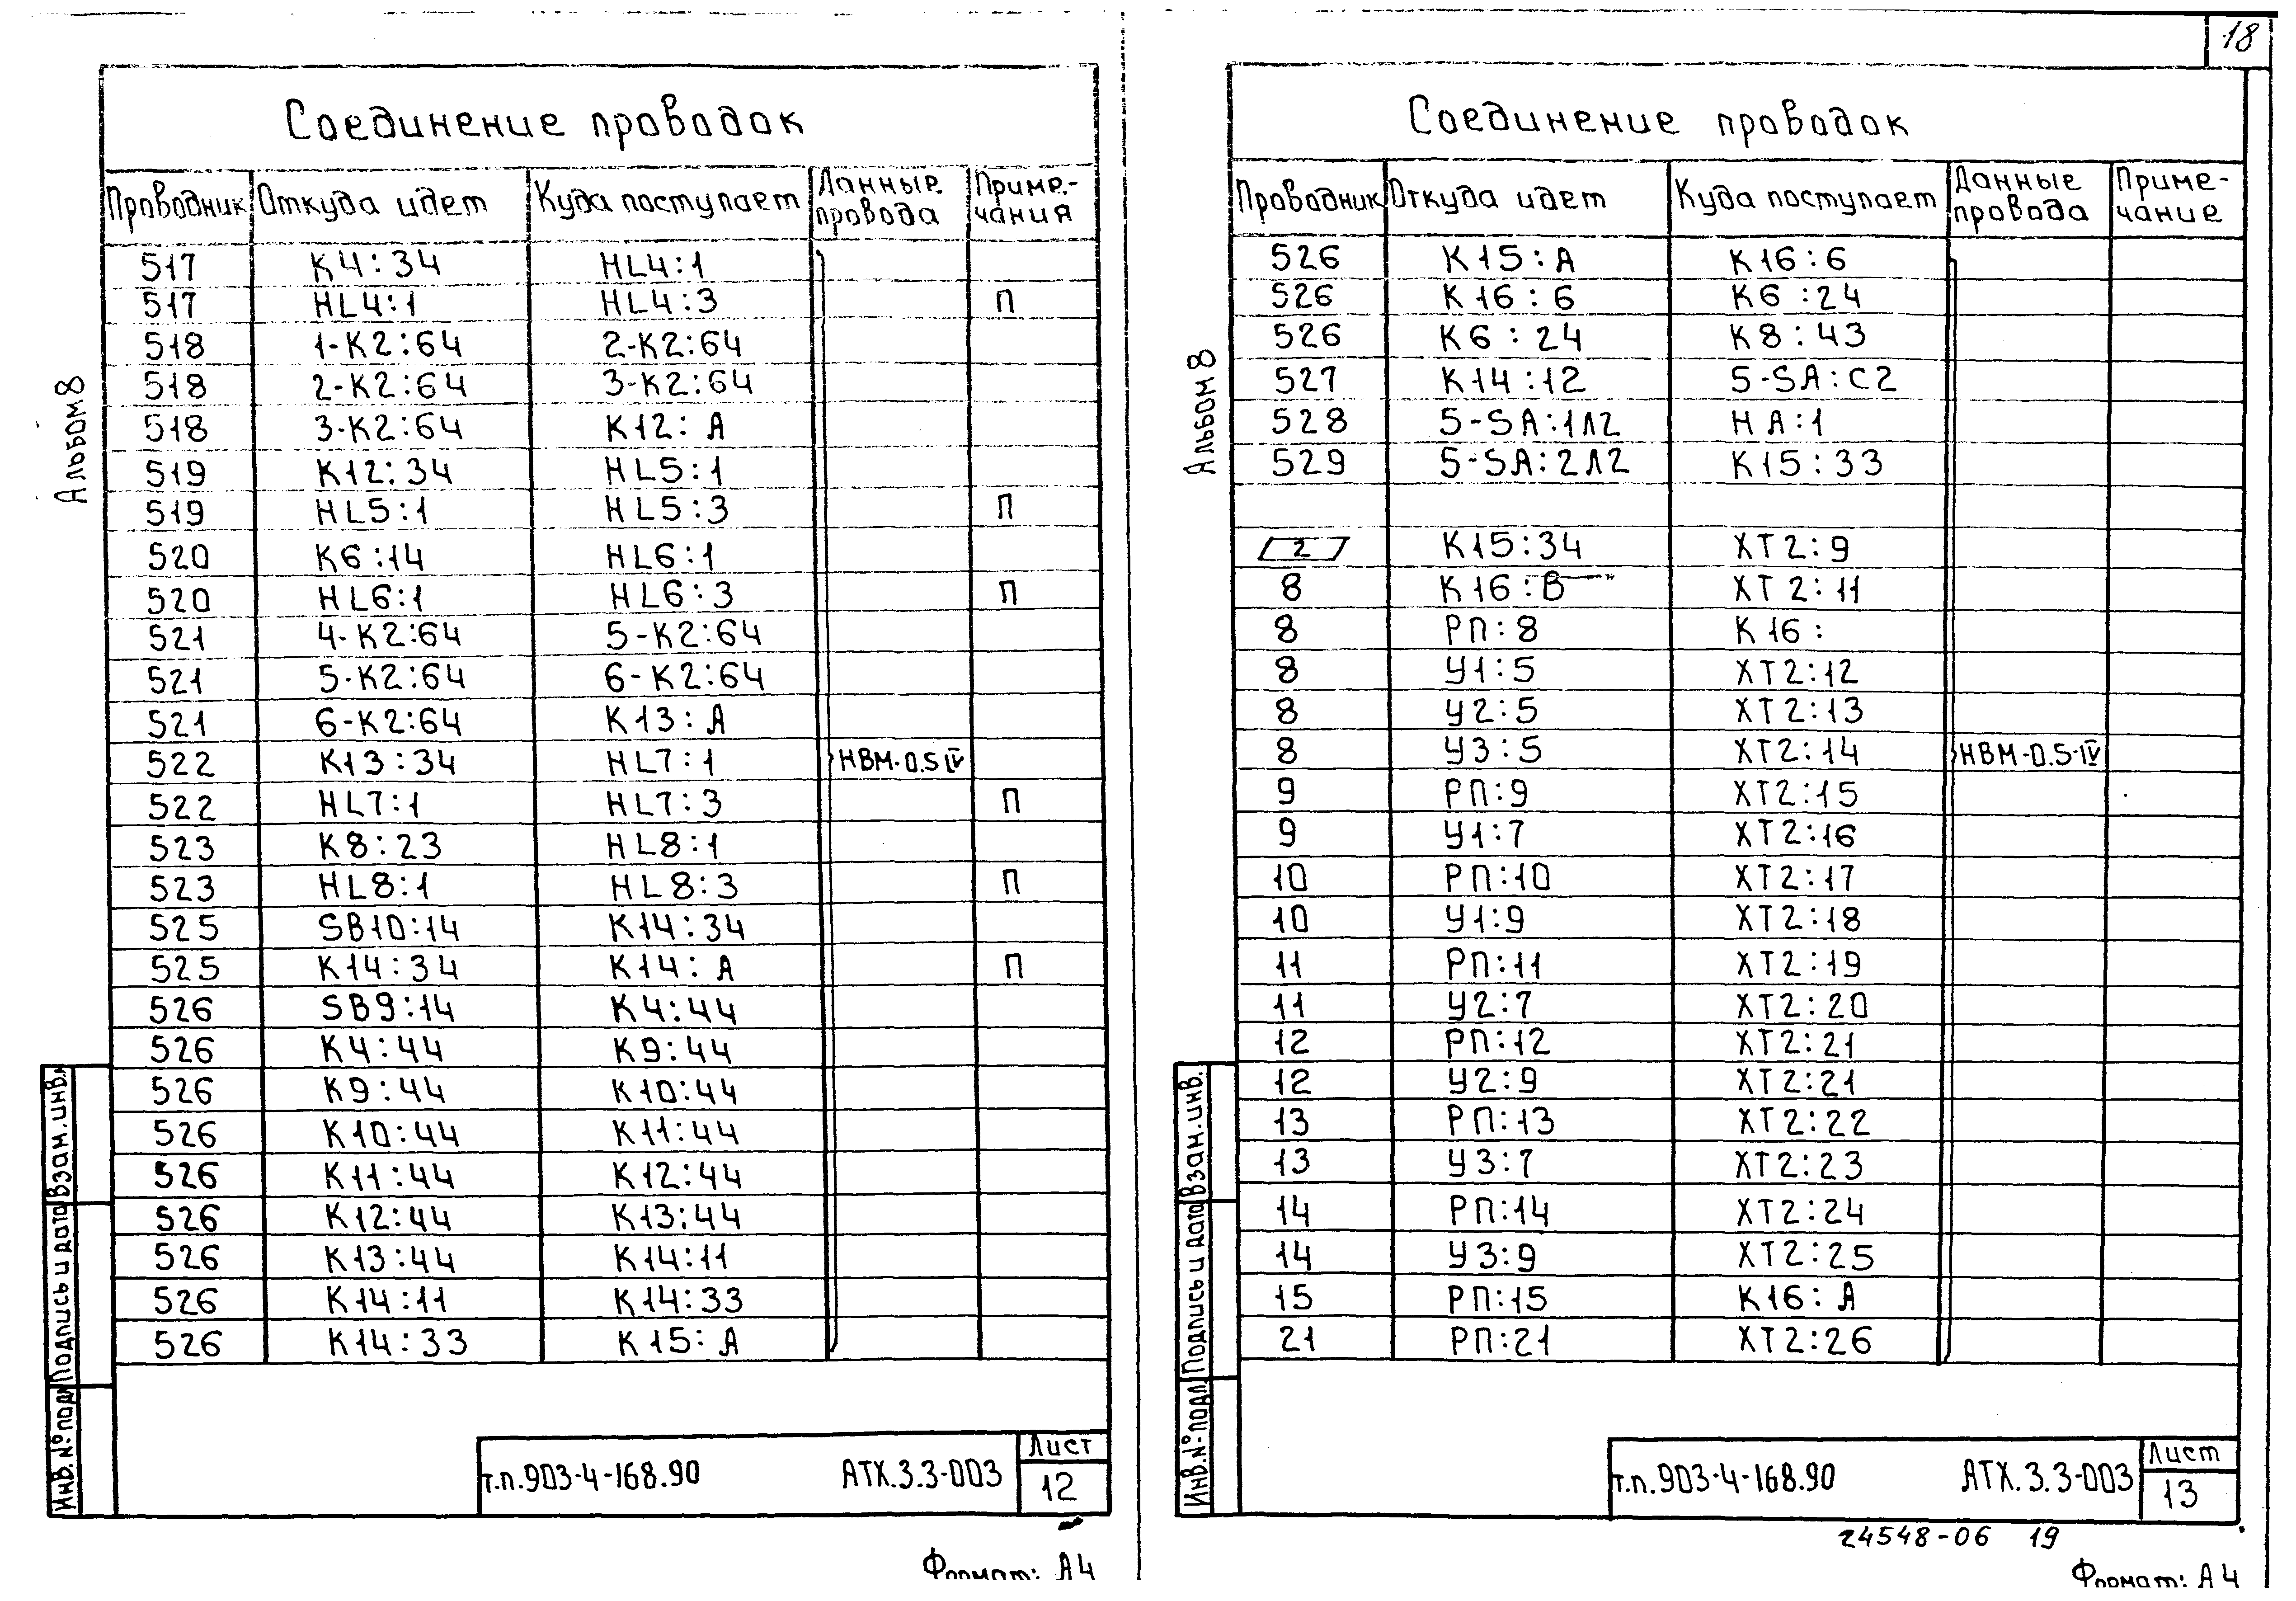 18
Соединение проводок
Проводник Откуда идет Куда поступает Данные провода Приме-чания
517 К4:34 HL4:1
517 HL4:1 HL4:3 П
518 1-К2:64 2-К2:64
518 2-К2:64 3-К2:64
518 3-К2:64 К12: А
519 К12:34 HL5:1
519 HL5:1 HL5:3 П
520 К6:14 HL6:1
520 HL6:1 HL6:3 П
521 4-К2:64 5-К2:64
521 5-К2:64 6-К2:64
521 6-К2:64 К13: А
522 К13:34 HL7:1 НВМ-0.5 IV
522 HL7:1 HL7:3 П
523 К8:23 HL8:1
523 HL8:1 HL8:3 П
525 SB10:14 К14:34
525 К14:34 К14: А П
526 SB9:14 К4:44
526 К4:44 К9:44
526 К9:44 К10:44
526 К10:44 К11:44
526 К11:44 К12:44
526 К12:44 К13:44
526 К13:44 К14:11
526 К14:11 К14:33
526 К14:33 К15: А
Альбом 8
Взам.инв.№
Подпись и дата
Инв.№подл
т.п.903-4-168.90 АТХ.3.3-003 Лист
12
Формат: А4
Соединение проводок
Проводник Откуда идет Куда поступает Данные провода Приме-чание
526 К15:А К16:6
526 К16:6 К6:24
526 К6:24 К8:43
527 К14:12 5-SA:С2
528 5-SA:1Л2 НА:1
529 5-SA:2Л2 К15:33
2 К15:34 ХТ2:9
8 К16:В ХТ2:11
8 РП:8 К16:
8 У1:5 ХТ2:12
8 У2:5 ХТ2:13
8 У3:5 ХТ2:14 НВМ-0.5-IV
9 РП:9 ХТ2:15
9 У1:7 ХТ2:16
10 РП:10 ХТ2:17
10 У1:9 ХТ2:18
11 РП:11 ХТ2:19
11 У2:7 ХТ2:20
12 РП:12 ХТ2:21
12 У2:9 ХТ2:21
13 РП:13 ХТ2:22
13 У3:7 ХТ2:23
14 РП:14 ХТ2:24
14 У3:9 ХТ2:25
15 РП:15 К16: А
21 РП:21 ХТ2:26
Альбом 8
Взам.инв.
Подпись и дата
Инв.№подл.
т.п.903-4-168.90 АТХ.3.3-003 Лист
13
24548-06 19
Формат: А4